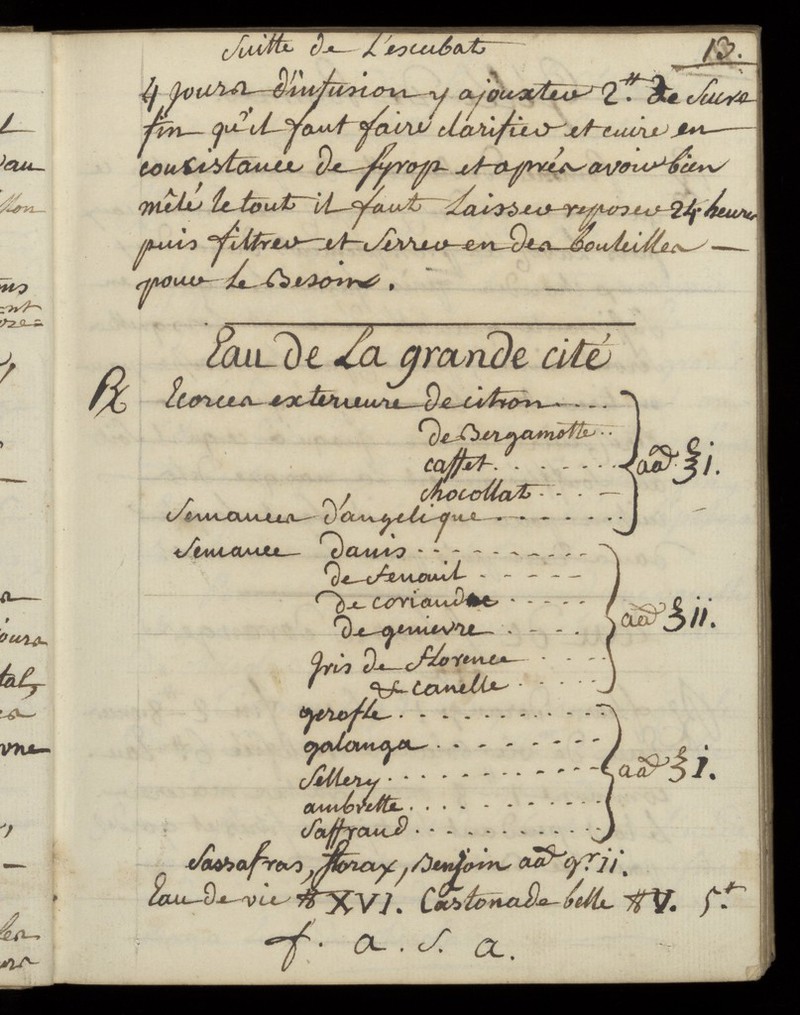 Suitte de L'escubat 13.
4 jours d'infusion y ajouxter 2.# De Sucre
fin qu'il faut faire clarifier et cuire en
consistance de syrop et aprés avoir bien
mêlé le tout il faut Laisser reposer 24 heures
puis filtrer et Serrer en des bouteilles —
pour le Besoin.
Eau de La grande cité
℞ Ecorces exterieure de citron....
de Bergamotte..
caffet.......
chocollat....
aã. ℥ I.
Semances d'angelique........
Semance Danis..........
de fenouil......
De coriandre.....
De genievre.....
aã ℥ II.
Jris de florence....
& canelle.....
gerofle............
galanga........
Sellery............
aã ℥ I.
ambrette..........
Saffrand...........
Sassafras, storax, Benjoin aã gr. ii.
Eau de vie # XVI. Castonade belle # V. 5.#
f. a. S. a.